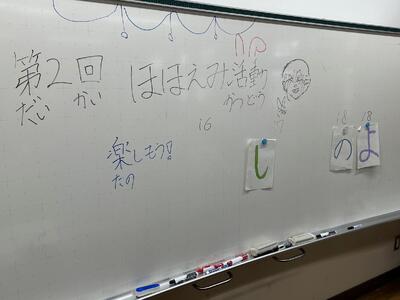 第2回 ほほえみ活動
だい かい かつどう
16 18 18
楽しもう!!
たの
し の よ